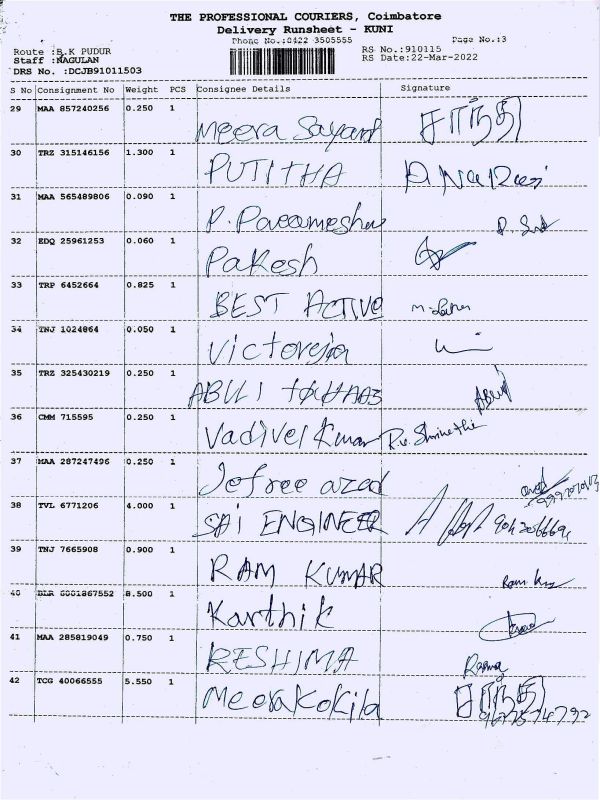 THE PROFESSIONAL COURIERS, Coimbatore
Delivery Runsheet - KUNI
Phone No.:0422 3505555 Page No.:3
Route :B.K PUDUR RS No.:910115
Staff :NAGULAN RS Date:22-Mar-2022
DRS No. :DCJB91011503
S No Consignment No Weight PCS Consignee Details Signature
29 MAA 857240256 0.250 1 Meera சாந்தி
30 TRZ 315146156 1.300 1 PUTITHA
31 MAA 565489806 0.090 1 P.
32 EDQ 25961253 0.060 1 Pakesh
33 TRP 6452664 0.825 1 BEST ACTIVE
34 TNJ 1024864 0.050 1
35 TRZ 325430219 0.250 1
36 CMM 715595 0.250 1 Vadivel Kumar
37 MAA 287247496 0.250 1 Jefree azad
38 TVL 6771206 4.000 1 SAI ENGINEER
39 TNJ 7665908 0.900 1 RAM KUMAR
40 BLR 6001867552 8.500 1 Karthik
41 MAA 285819049 0.750 1 RESHIMA
42 TCG 40066555 5.550 1 Meera Kokila சாந்தி